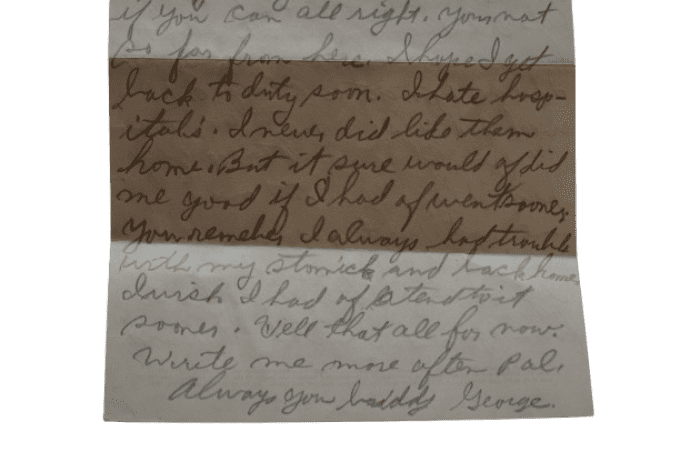 if you can all right. Your not
so far from here. I hope I get
back to duty soon. I hate hosp-
itals. I never did like them
home. But it sure would of did
me good if I had of went sooner.
You remeber I always had trouble
with my stomick and back home.
I wish I had of atend to it
sooner. Well that all for now.
Write me more often Pal.
Always you buddy George.